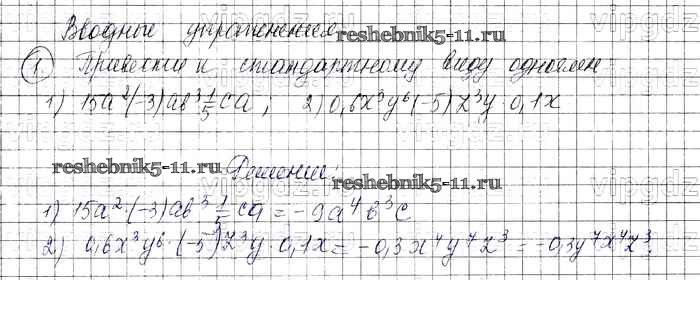 Вводные упражнения.
reshebnik5-11.ru
1. Привести к стандартному виду одночлен
1) 15a²(-3)ab³ 1/5 ca; 2) 0,6x³y⁶(-5)z³y · 0,1x
reshebnik5-11.ru Решение. reshebnik5-11.ru
1) 15a²·(-3)ab³ 1/5 ca = -9a⁴b³c
2) 0,6x³y⁶·(-5)z³y·0,1x = -0,3x⁴y⁷z³ = -0,3y⁷x⁴z³.
vipgdz